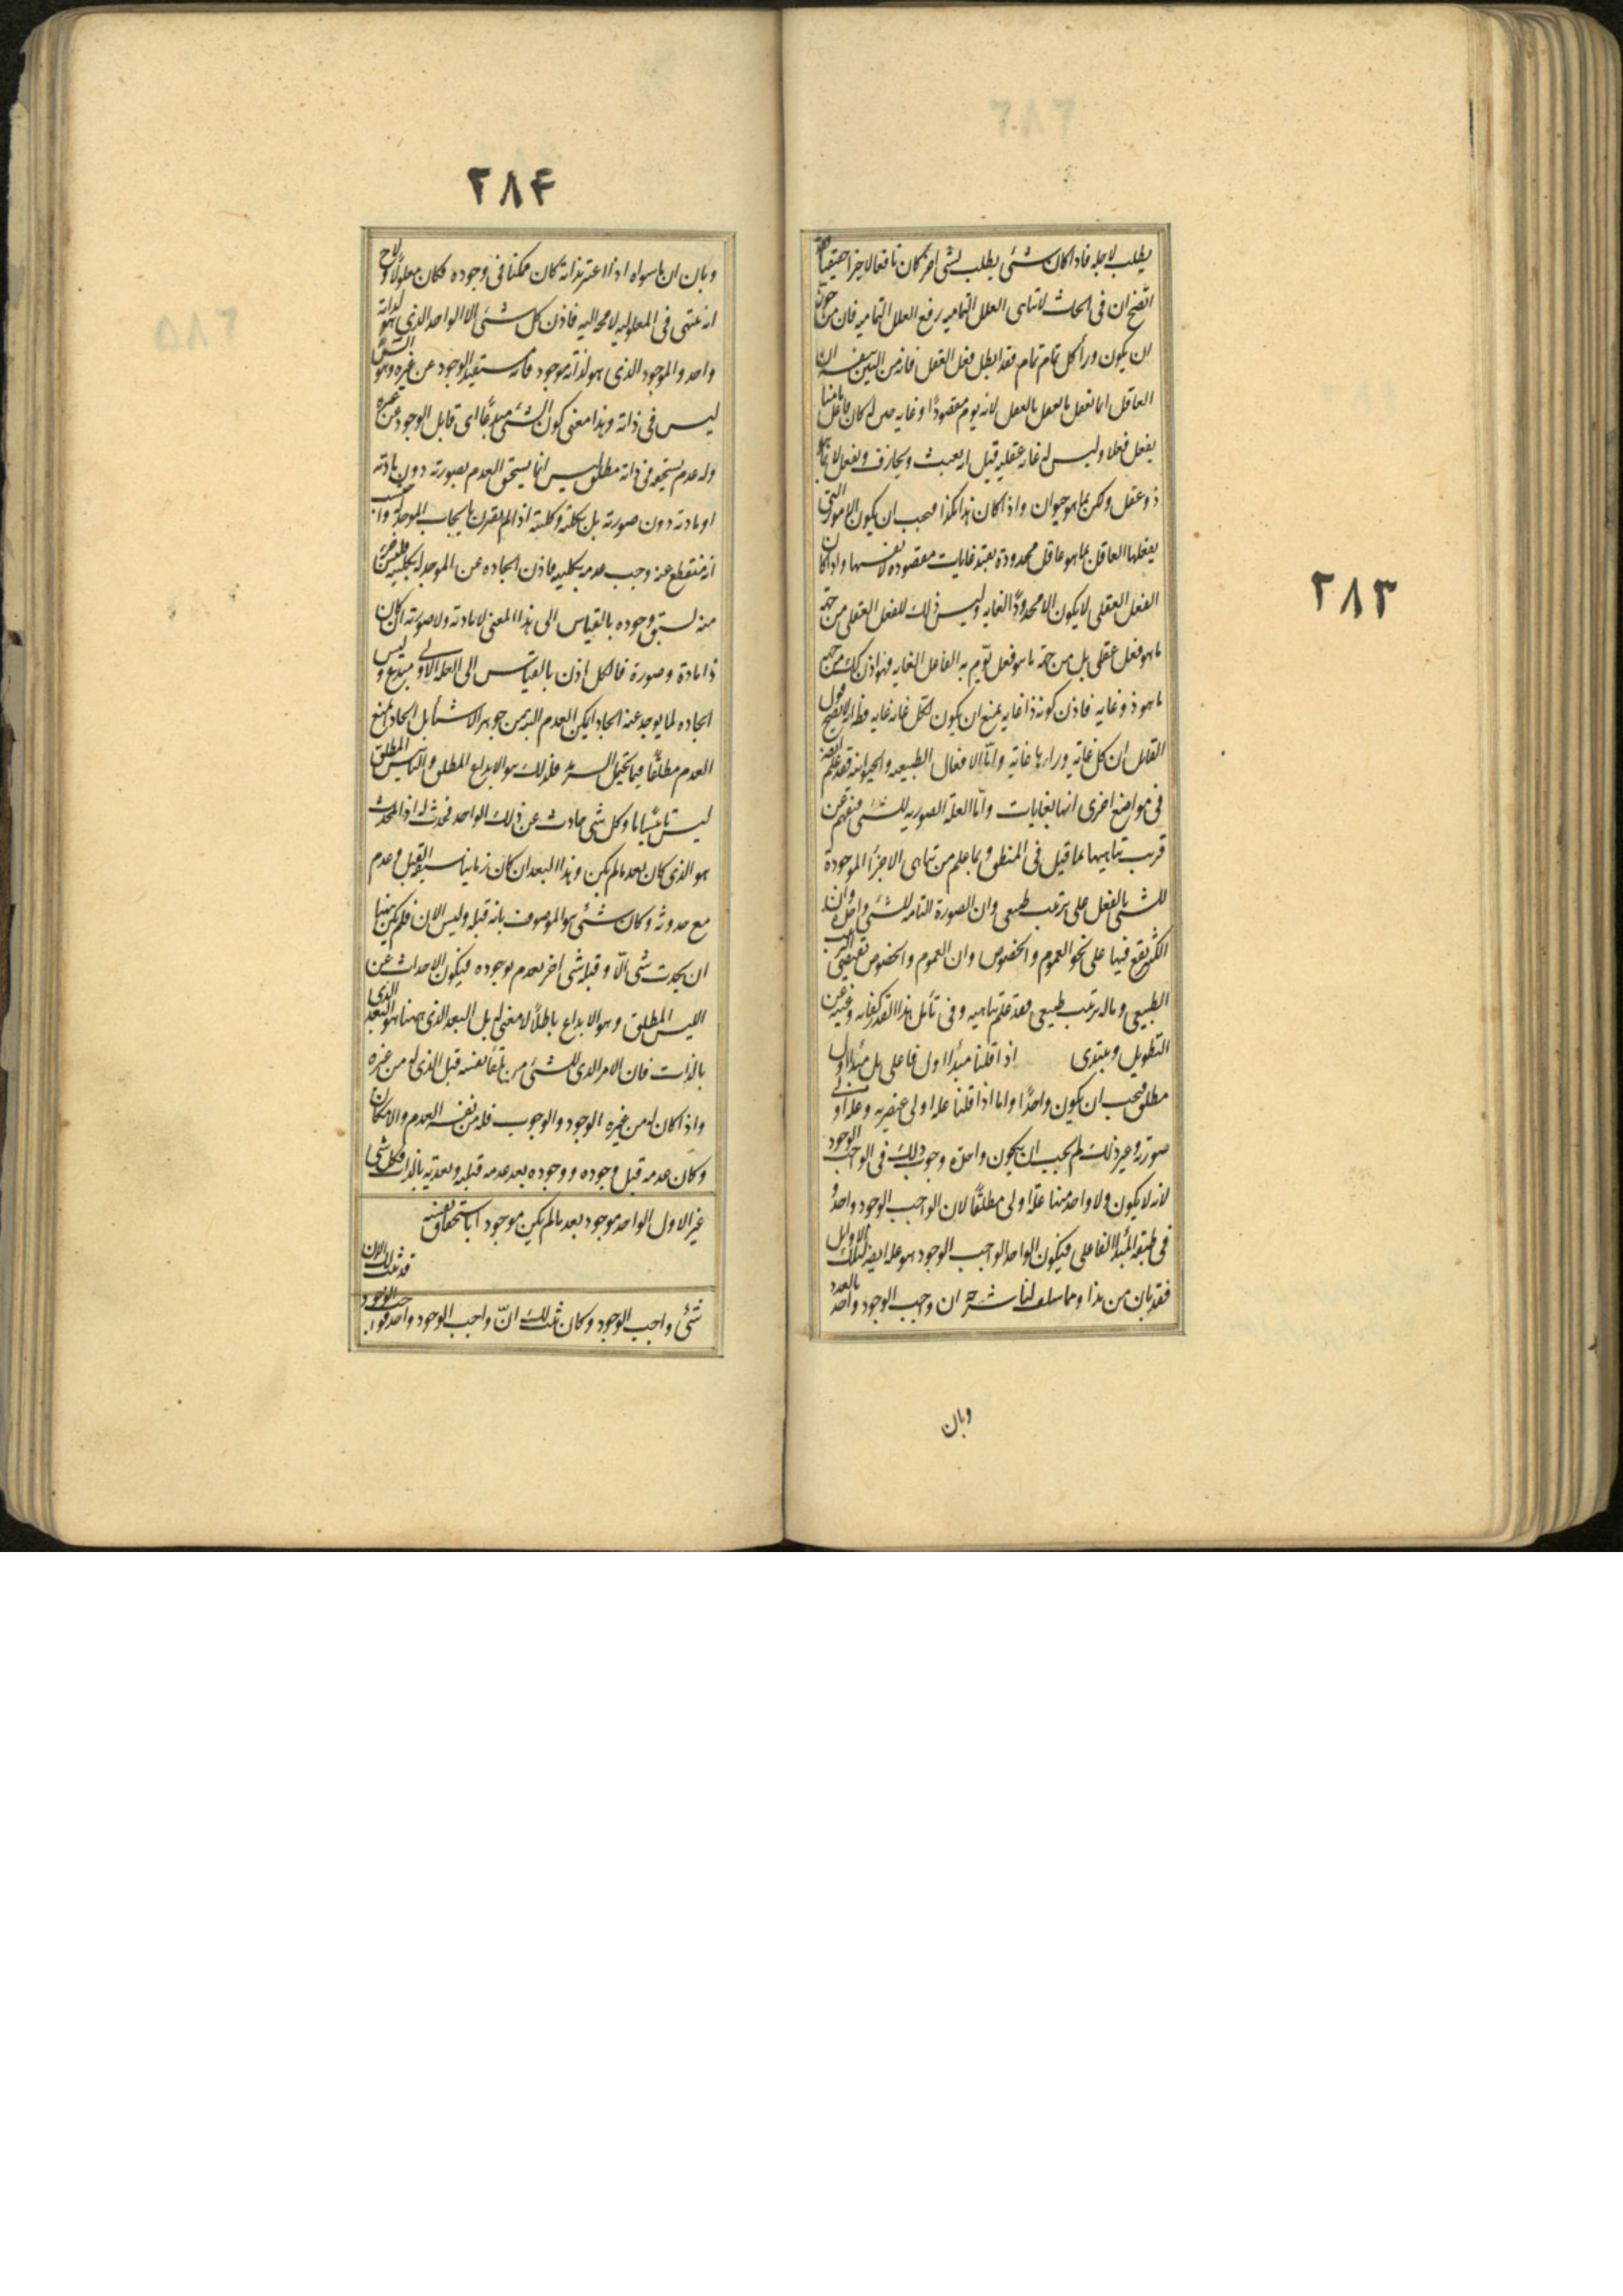 ٢٨٣
يطلب لاجله فاذا كان شئ يطلب لشئ اخر كان نافعا لا خيرا حقيقيا فقد
اتضح ان فى اثبات لاتناهى العلل التماميه رفع العلل التماميه فان من جوز
ان يكون وراء كل تمام تمام فقد ابطل فعل العقل فانه من البين بنفسه ان
العاقل انما يفعل ما يفعل بالعقل لانه يوم مقصودًا وغايه حتى لو كان فاعل منا
يفعل فعلا وليس له غاية عقليه قيل انه يعبث ويجازف ويفعل لا بما هو
ذو عقل ولكن بما هو حيوان واذا كان هذا هكذا فيجب ان يكون الامور التى
يفعلها العاقل بما هو عاقل محدودة بقيد غايات مقصوده لانفسها واذا كان
الفعل العقلى لا يكون الا محدودًا لغايه وليس ذلك للفعل العقلى من جهة
ما هو فعل عقلى بل من جهة ما هو فعل يؤم به الفاعل الغايه فهو اذن كذلك من جهة
ما هو ذو غايه فاذن كونه ذا غايه يمنع ان يكون لكل غايه غايه فظاهر انه لا يصح قول
القائل ان كل غاية وراءها غاية واما الافعال الطبيعيه والحيوانيه فقد علم ايضا
فى مواضع اخرى انها لغايات واما العلة الصوريه للشئ فيفهم عن
قرب تناهيها بما قيل فى المنطق وبما علم من تناهى الاجزاء الموجودة
للشئ بالفعل على ترتيب طبيعى وان الصورة التامه للشئ واحدة وان
الكثير يقع فيها على نحو العموم والخصوص وان العموم والخصوص تقتضى الترتيب
الطبيعى وما له ترتيب طبيعى فقد علم تناهيه وفى تأمل هذا القدر كفايه وغنيه عن
التطويل ونبتدى اذا قلنا مبدأ اول فاعلى بل مبدأ اول
مطلق فيجب ان يكون واحدًا واما اذا قلنا علة اولى عنصريه وعلة اولى
صورية وغير ذلك لم يجب ان يكون واحدة وجوب ذلك فى الواجب الوجود
لانه لا يكون ولا واحد منها علة اولى مطلقًا لان الواجب الوجود واحد و
فى طبقة المبدأ الفاعلى فيكون الواحد الواجب الوجود هو علة ايضا لتلك الاوايل
فقد بان من هذا ومما سلف لنا شرحه ان واجب الوجود واحد بالعدد
وبان
٢٨۴
وبان ان ما سواه اذا اعتبر بذاته كان ممكنا فى وجوده فكان معلولًا ولاح
انه ينتهى فى المعلوليه لا محه اليه فاذن كل شئ الا الواحد الذى هو لذاته
واحد والموجود الذى هو لذاته موجود فانه مستفيد الوجود عن غيره وهو الشئ
ليس فى ذاته وهذا معنى كون الشئ مبدعًا اى قابل الوجود عن غيره
وله عدم يستحقه فى ذاته مطلق ليس انما يستحق العدم بصورته دون مادته
او مادته دون صورته بل بكليته وكليته اذا لم يقترن بايجاب الموجد له واحتسب
انه منقطع عنه وجب عدمه بكليته فاذن ايجاده عن الموجد له بكليته فليس جزء
منه لسبق وجوده بالقياس الى هذا المعنى لا مادته ولا صورته ان كان
ذا مادة وصورة فالكل اذن بالقياس الى العلة الاولى مبتدع وليس
ايجاده لما يوجد عنه ايجادا يمكن العدم البته من جوهر الاشياء بل ايجاد يمنع
العدم مطلقًا فيما يحتمل السرمد فذلك هو الابداع المطلق والتاييس المطلق
ليس تاييسًا ما وكل شئ حادث عن ذلك الواحد فحدث له اذ المحدث
هو الذى كان بعد ما لم يكن وهذا البعد ان كان زمانيا سبقه القبل وعدم
مع حدوثه وكان شئ هو الموصوف بانه قبله وليس الان فلم يكن يتهيا
ان يحدث شئ الّا وقبله شئ اخر يعدم بوجوده فيكون الاحداث عن
الليس المطلق وهو الابداع باطلًا لا معنى له بل البعد الذى ههنا هو البعد الذى
بالذات فان الامر الذى للشئ من تلقاء نفسه قبل الذى له من غيره
واذا كان له من غيره الوجود والوجوب فله من نفسه العدم والامكان
وكان عدمه قبل وجوده ووجوده بعد عدمه قبليه وبعديه بالذات فكل شئ
غير الاول الواحد موجود بعد ما لم يكن موجودا باستحقاق نفسه
قد ثبت لك الان
شئ واجب الوجود وكان ثبت لك انّ واجب الوجود واحد فواجب الوجود